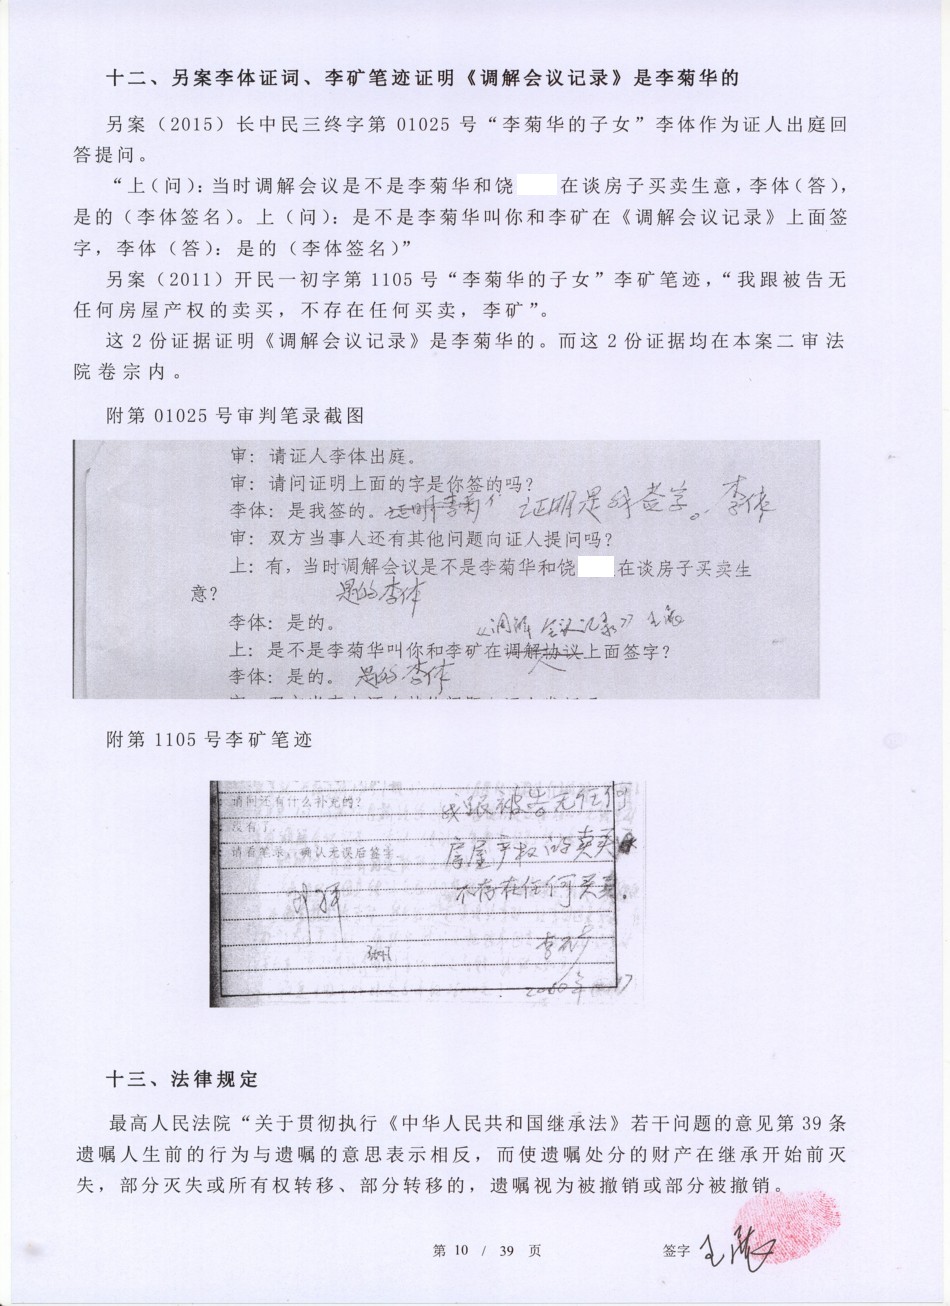 十二、另案李体证词、李矿笔迹证明《调解会议记录》是李菊华的
另案（2015）长中民三终字第 01025 号“李菊华的子女”李体作为证人出庭回
答提问。
“上（问）：当时调解会议是不是李菊华和饶 在谈房子买卖生意，李体（答），
是的（李体签名）。上（问）：是不是李菊华叫你和李矿在《调解会议记录》上面签
字，李体（答）：是的（李体签名）”
另案（2011）开民一初字第 1105 号“李菊华的子女”李矿笔迹，“我跟被告无
任何房屋产权的卖买，不存在任何买卖，李矿”。
这 2 份证据证明《调解会议记录》是李菊华的。而这 2 份证据均在本案二审法
院卷宗内。
附第 01025 号审判笔录截图
审：请证人李体出庭。
审：请问证明上面的字是你签的吗？
李体：是我签的。 证明是我签字。李体
审：双方当事人还有其他问题向证人提问吗？
上：有，当时调解会议是不是李菊华和饶 在谈房子买卖生
意？ 是的李体
李体：是的。 《调解会议记录》
上：是不是李菊华叫你和李矿在调解协议上面签字？
李体：是的。 是的李体
附第 1105 号李矿笔迹
请问还有什么补充的？ 我跟被告无任何
没有了
请看笔录，确认无误后签字 房屋产权的卖买
不存在任何买卖．
李矿
十三、法律规定
最高人民法院“关于贯彻执行《中华人民共和国继承法》若干问题的意见第 39 条
遗嘱人生前的行为与遗嘱的意思表示相反，而使遗嘱处分的财产在继承开始前灭
失，部分灭失或所有权转移、部分转移的，遗嘱视为被撤销或部分被撤销。
第 10 / 39 页 签字